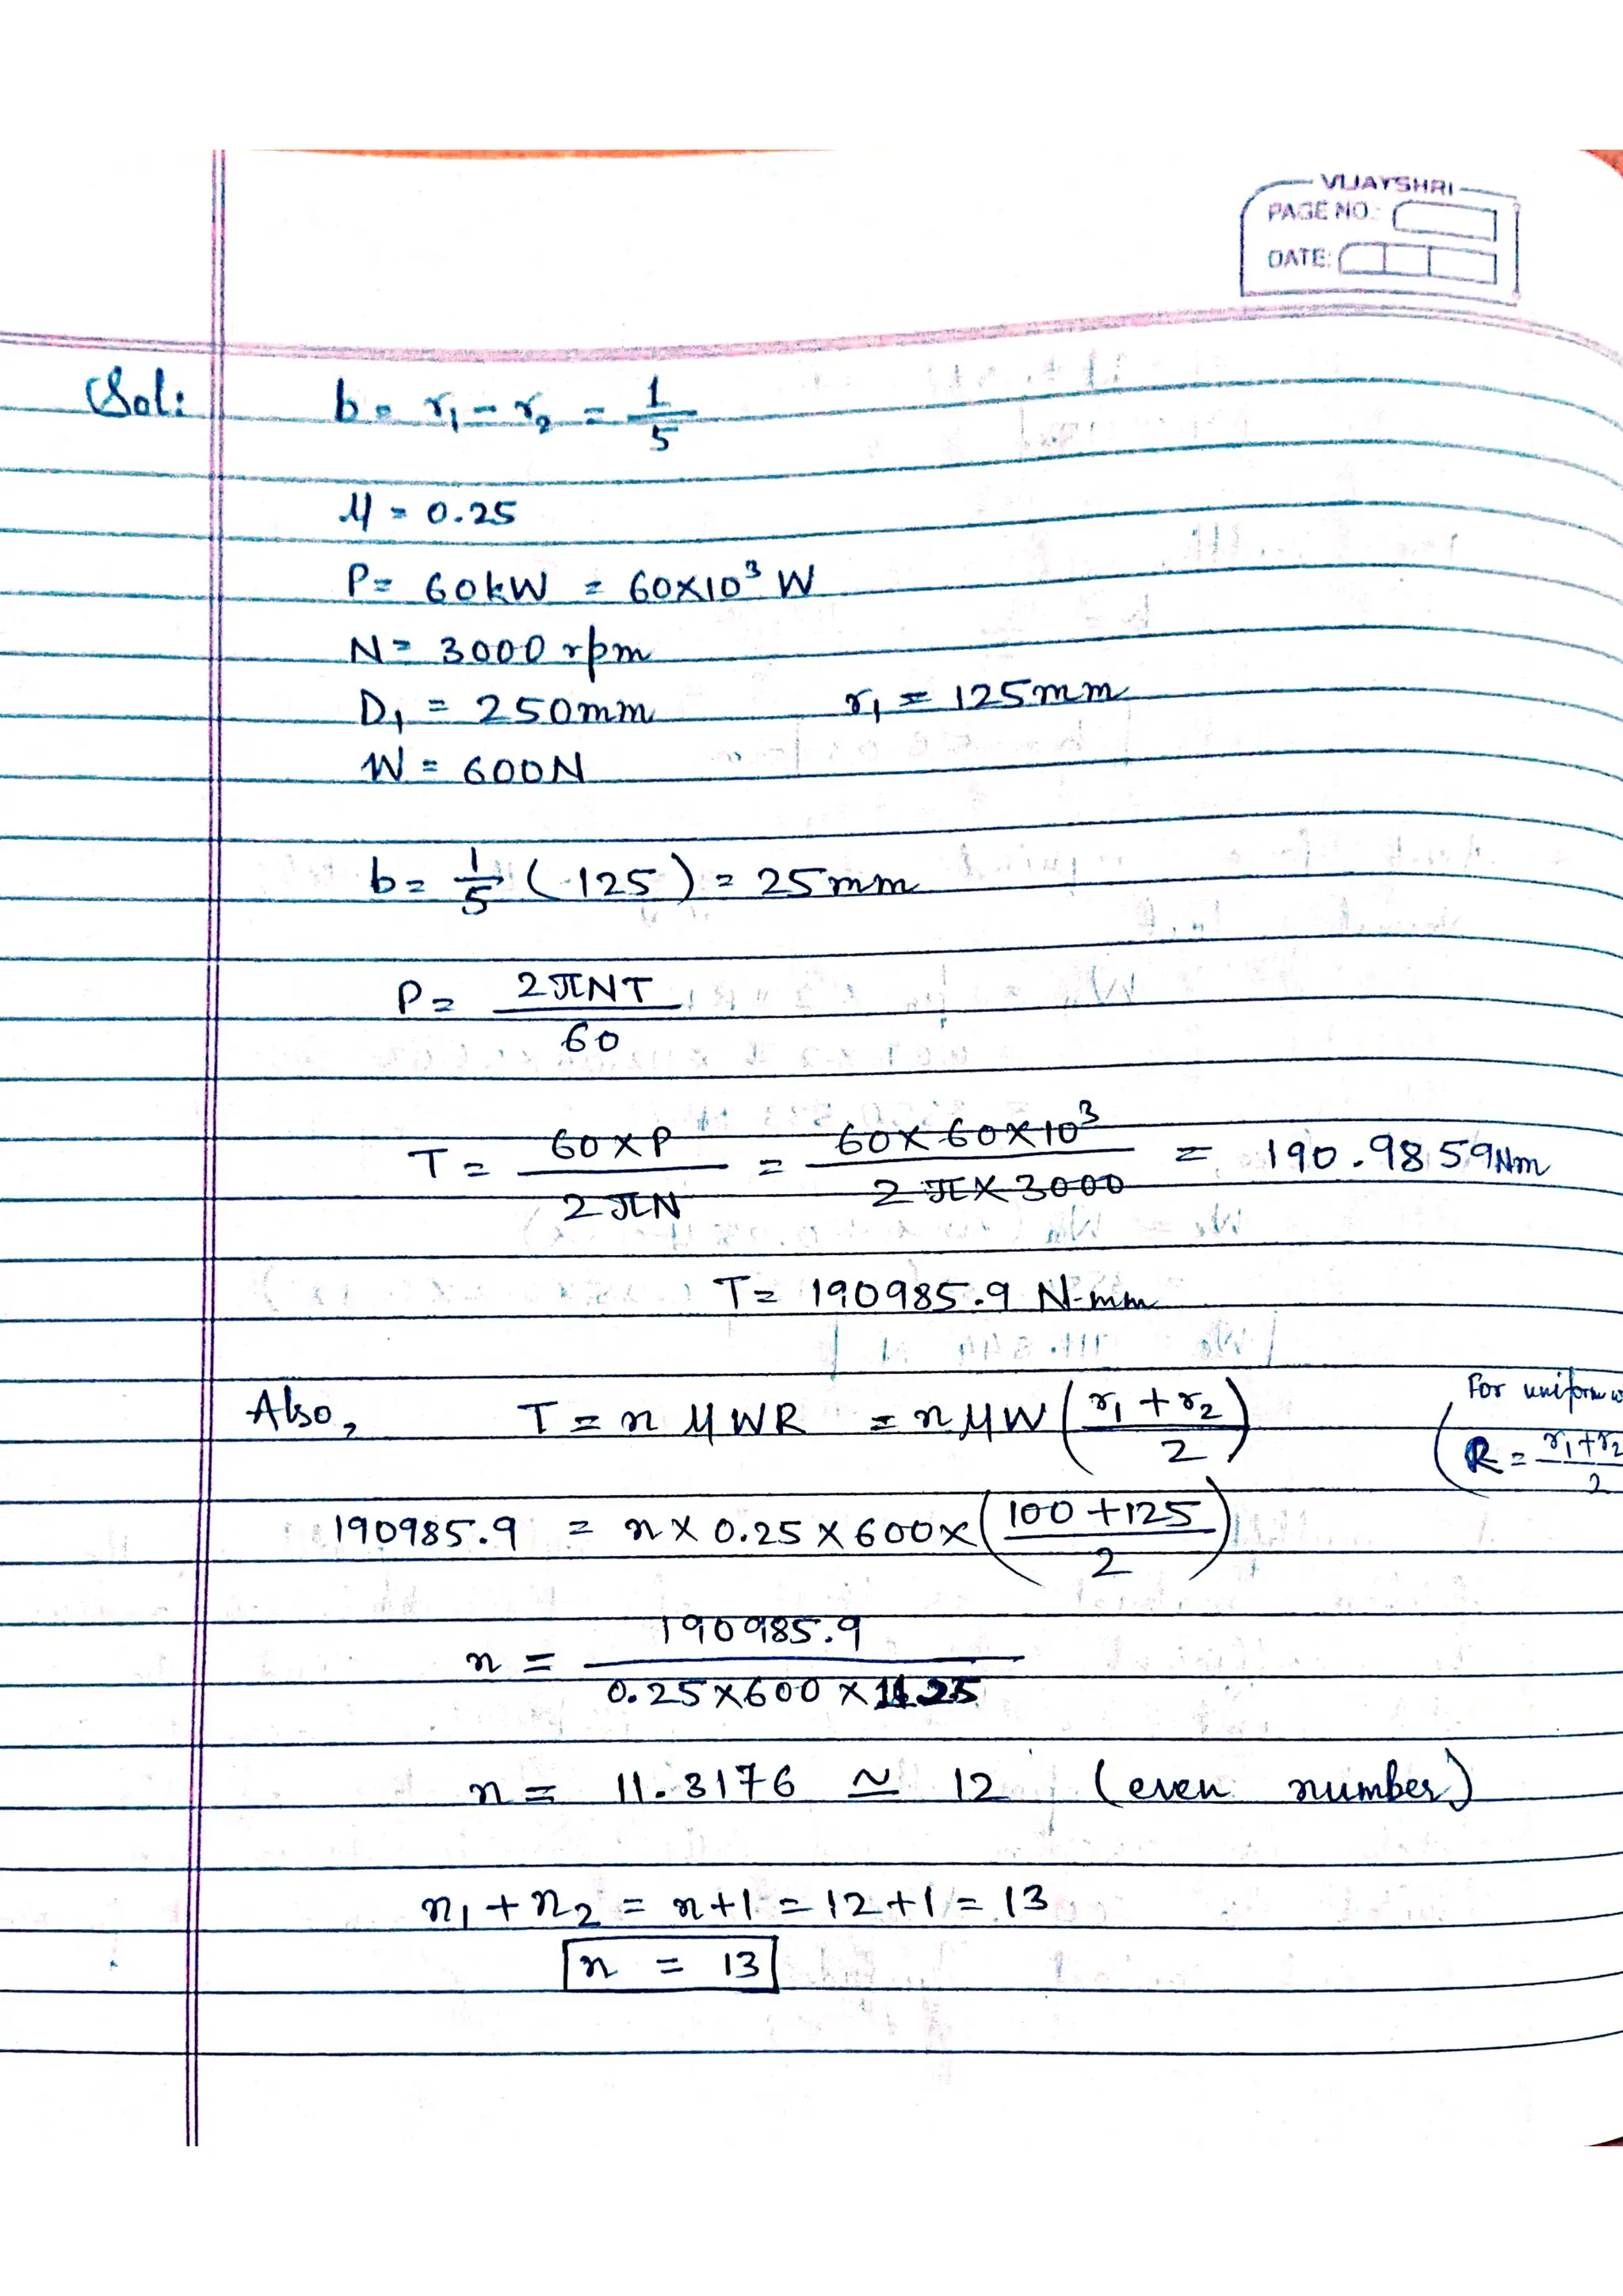 VIJAYSHRI
PAGE NO.:
DATE:
Sol: b = r₁ - r₂ = 1/5
μ = 0.25
P = 60kW = 60×10³ W
N = 3000 rpm
D₁ = 250mm r₁ = 125mm
W = 600N
b = 1/5 (125) = 25mm
P = 2πNT/60
T = 60×P/2πN = 60×60×10³/2π×3000 = 190.9859Nm
T = 190985.9 N-mm
Also, T = n μWR = nμW((r₁+r₂)/2) For uniform
(R = (r₁+r₂)/2
190985.9 = n×0.25×600×((100+125)/2)
n = 190985.9/0.25×600×
n = 11.3176 ≃ 12 (even number)
n₁+n₂ = n+1 = 12+1 = 13
n = 13